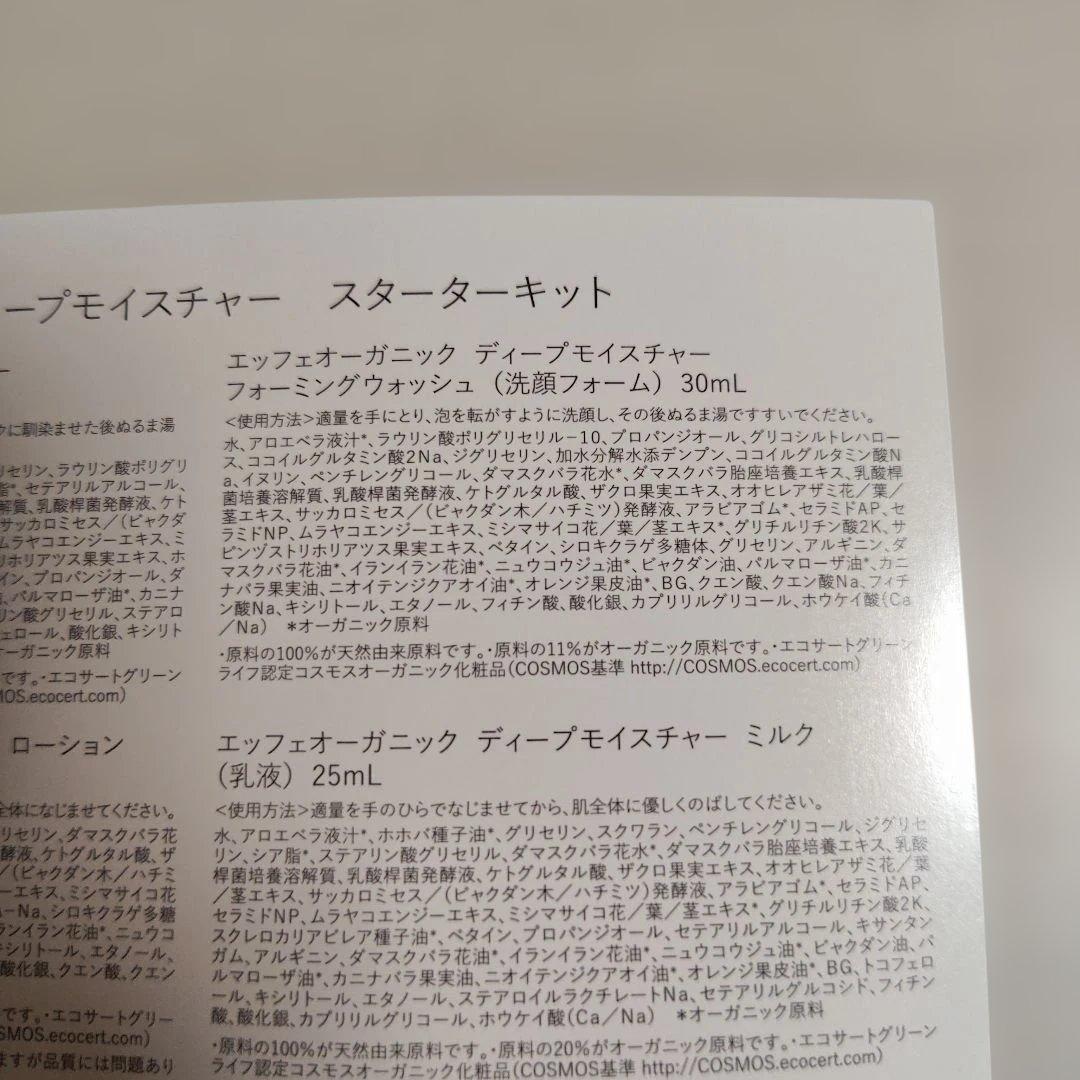 ープモイスチャー　スターターキット
ー
クに馴染ませた後ぬるま湯
リセリン、ラウリン酸ポリグリ
脂*、セテアリルアルコール、
解質、乳酸桿菌発酵液、ケト
サッカロミセス／(ビャクダ
ムラヤコエンジーエキス、ミ
リホリアツス果実エキス、ホ
イン、プロパンジオール、ダ
、パルマローザ油*、カニナ
リン酸グリセリル、ステアロ
ェロール、酸化銀、キシリト
オーガニック原料
です。・エコサートグリーン
MOS.ecocert.com)
エッフェオーガニック ディープモイスチャー
フォーミングウォッシュ（洗顔フォーム）30mL
<使用方法>適量を手にとり、泡を転がすように洗顔し、その後ぬるま湯ですすいでください。
水、アロエベラ液汁*、ラウリン酸ポリグリセリル−10、プロパンジオール、グリコシルトレハロー
ス、ココイルグルタミン酸2Na、ジグリセリン、加水分解水添デンプン、ココイルグルタミン酸N
a、イヌリン、ペンチレングリコール、ダマスクバラ花水*、ダマスクバラ胎座培養エキス、乳酸桿
菌培養溶解質、乳酸桿菌発酵液、ケトグルタル酸、ザクロ果実エキス、オオヒレアザミ花／葉／
茎エキス、サッカロミセス／(ビャクダン木／ハチミツ)発酵液、アラビアゴム*、セラミドAP、セ
ラミドNP、ムラヤコエンジーエキス、ミシマサイコ花／葉／茎エキス*、グリチルリチン酸2K、サ
ピンヅストリホリアツス果実エキス、ベタイン、シロキクラゲ多糖体、グリセリン、アルギニン、ダ
マスクバラ花油*、イランイラン花油*、ニュウコウジュ油*、ビャクダン油、パルマローザ油*、カニ
ナバラ果実油、ニオイテンジクアオイ油*、オレンジ果皮油*、BG、クエン酸、クエン酸Na、フィチ
ン酸Na、キシリトール、エタノール、フィチン酸、酸化銀、カプリリルグリコール、ホウケイ酸(Ca
／Na)　*オーガニック原料
・原料の100%が天然由来原料です。・原料の11%がオーガニック原料です。・エコサートグリーン
ライフ認定コスモスオーガニック化粧品(COSMOS基準 http://COSMOS.ecocert.com)
ローション
全体になじませてください。
リセリン、ダマスクバラ花
酵液、ケトグルタル酸、ザ
／(ビャクダン木／ハチミ
ーエキス、ミシマサイコ花
A−Na、シロキクラゲ多糖
ランイラン花油*、ニュウコ
キシリトール、エタノール、
酸化銀、クエン酸、クエン
です。・エコサートグリー
OSMOS.ecocert.com)
ますが品質には問題あり
エッフェオーガニック ディープモイスチャー ミルク
（乳液）25mL
<使用方法>適量を手のひらでなじませてから、肌全体に優しくのばしてください。
水、アロエベラ液汁*、ホホバ種子油*、グリセリン、スクワラン、ペンチレングリコール、ジグリセ
リン、シア脂*、ステアリン酸グリセリル、ダマスクバラ花水*、ダマスクバラ胎座培養エキス、乳酸
桿菌培養溶解質、乳酸桿菌発酵液、ケトグルタル酸、ザクロ果実エキス、オオヒレアザミ花／葉
／茎エキス、サッカロミセス／(ビャクダン木／ハチミツ)発酵液、アラビアゴム*、セラミドAP、
セラミドNP、ムラヤコエンジーエキス、ミシマサイコ花／葉／茎エキス*、グリチルリチン酸2K、
スクレロカリアビレア種子油*、ベタイン、プロパンジオール、セテアリルアルコール、キサンタン
ガム、アルギニン、ダマスクバラ花油*、イランイラン花油*、ニュウコウジュ油*、ビャクダン油、パ
ルマローザ油*、カニナバラ果実油、ニオイテンジクアオイ油*、オレンジ果皮油*、BG、トコフェロ
ール、キシリトール、エタノール、ステアロイルラクチレートNa、セテアリルグルコシド、フィチン
酸、酸化銀、カプリリルグリコール、ホウケイ酸(Ca／Na)　*オーガニック原料
・原料の100%が天然由来原料です。・原料の20%がオーガニック原料です。・エコサートグリーン
ライフ認定コスモスオーガニック化粧品(COSMOS基準 http://COSMOS.ecocert.com)